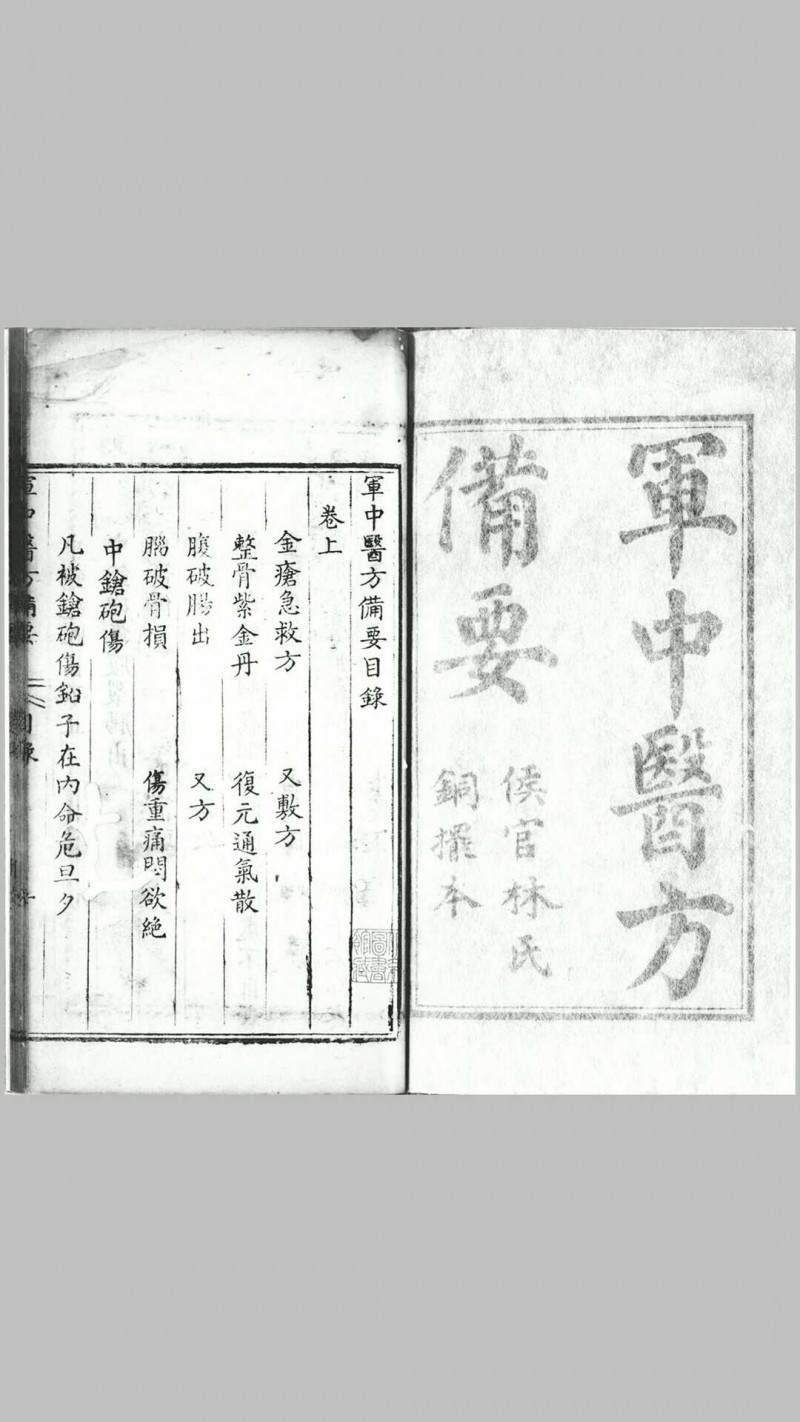 軍中醫方
備要
侯官林氏
銅擺本
軍中醫方備要目錄
卷上
金瘡急救方 又敷方
整骨紫金丹 復元通氣散
腹破腸出 又方
腦破骨損 傷重痛悶欲絶
中鎗砲傷
凡被鎗砲傷鉛子在內命危旦夕
軍中醫方備要 目錄